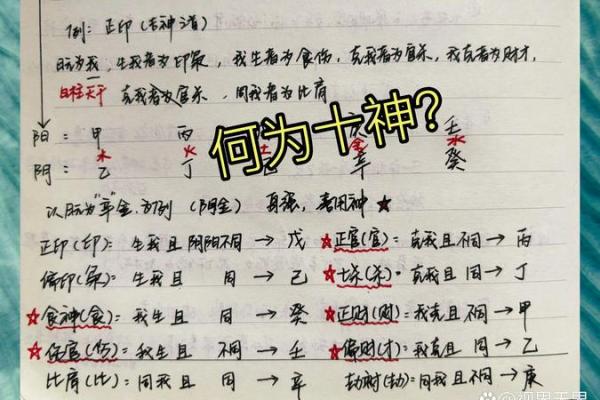 例：正印（吉神道）
日元为我，生我者为印枭，我生者为食伤，克我者为官杀，我克者为财才，
日柱天干 克我者为官杀，同我者为比肩
何为十神?
阳：甲 丙 庚 壬
木 火 土 金 水
阴：乙 丁 辛 癸
以日元为"辛"金为例（阴金） 身强，喜用神 ★
正印（印）：生我且阴阳不同 → 戊 ★正官（官）：克我且不同 → 丙
偏印（枭）：生我且 同 → 己 ★七杀（杀）：克我且同 → 丁
★食神（食）：我生且 同 → 癸 ★正财（财）：我克且不同 → 甲
★伤官（伤）：我生且 不同 → 壬 ★偏财（才）：我克且同 → 乙
比肩（比）：同我且 同 → 辛 劫财（劫）：同我且不同 → 庚